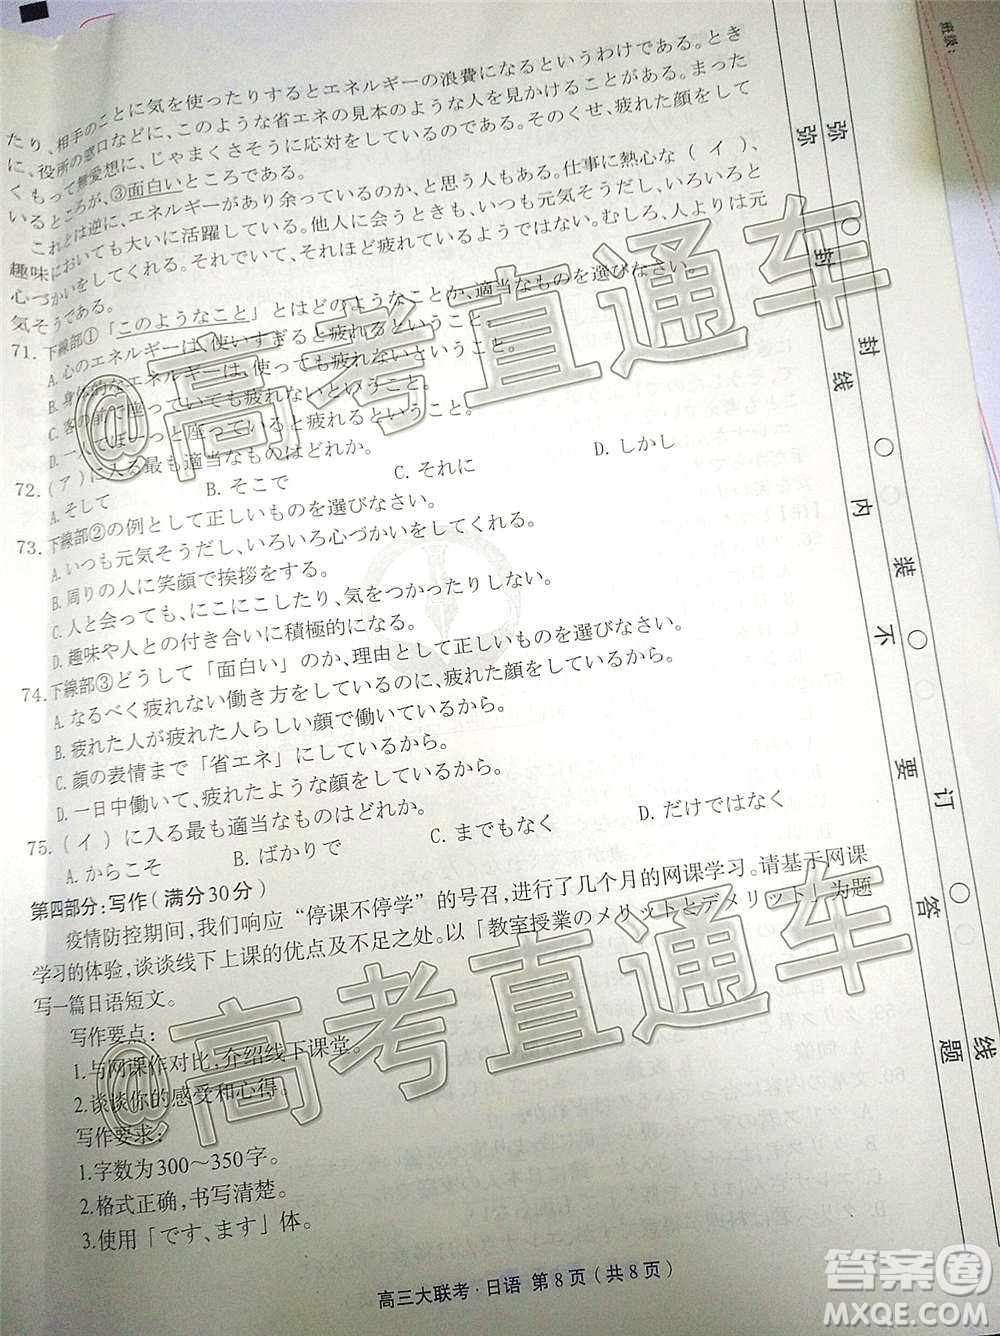 たり、相手のことに気を使ったりするとエネルギーの浪費になるというわけである。とき
に、役所の窓口などに、このような省エネの見本のような人を見かけることがある。まった
くもって無愛想に、じゃまくさそうに応対をしているのである。そのくせ、疲れた顔をして
いるところが、③面白いところである。
これとは逆に、エネルギーがあり余っているのか、と思う人もある。仕事に熱心な（イ）、
趣味においても大いに活躍している。他人に会うときも、いつも元気そうだし、いろいろと
心づかいをしてくれる。それでいて、それほど疲れているようではない。むしろ、人よりは元
気そうである。
71. 下線部①「このようなこと」とはどのようなことか、適当なものを選びなさい。
A. 心のエネルギーは、使いすぎると疲れるということ。
B. 身体的なエネルギーは、使っても疲れないということ。
C. 客の前で座っていても疲れないということ。
D. 一人でぼーっと座っていると疲れるということ。
72. （ア）に入る最も適当なものはどれか。
A. そして B. そこで C. それに D. しかし
73. 下線部②の例として正しいものを選びなさい。
A. いつも元気そうだし、いろいろ心づかいをしてくれる。
B. 周りの人に笑顔で挨拶する。
C. 人と会っても、にこにこしたり、気をつかったりしない。
D. 趣味や人との付き合いに積極的になる。
74. 下線部③どうして「面白い」のか、理由として正しいものを選びなさい。
A. なるべく疲れない働き方をしているのに、疲れた顔をしているから。
B. 疲れた人が疲れた人らしい顔で働いているから。
C. 顔の表情まで「省エネ」にしているから。
D. 一日中働いて、疲れたような顔をしているから。
75. （イ）に入る最も適当なものはどれか。
A. からこそ B. ばかりで C. までもなく D. だけではなく
第四部分:写作(满分30分)
疫情防控期间,我们响应“停课不停学”的号召,进行了几个月的网课学习。请基于网课
学习的体验,谈谈线下上课的优点及不足之处。以「教室授業のメリットとデメリット」为题
写一篇日语短文。
写作要点:
1.与网课作对比,介绍线下课堂。
2.谈谈你的感受和心得。
写作要求:
1.字数为300～350字。
2.格式正确,书写清楚。
3.使用「です、ます」体。
高三大联考·日语 第8页(共8页)
弥 封 线 内 不 要 答 题
弥 封 线 装 订 线
班级:
@高考直通车
@高考直通车
答案圈
MXQE.COM